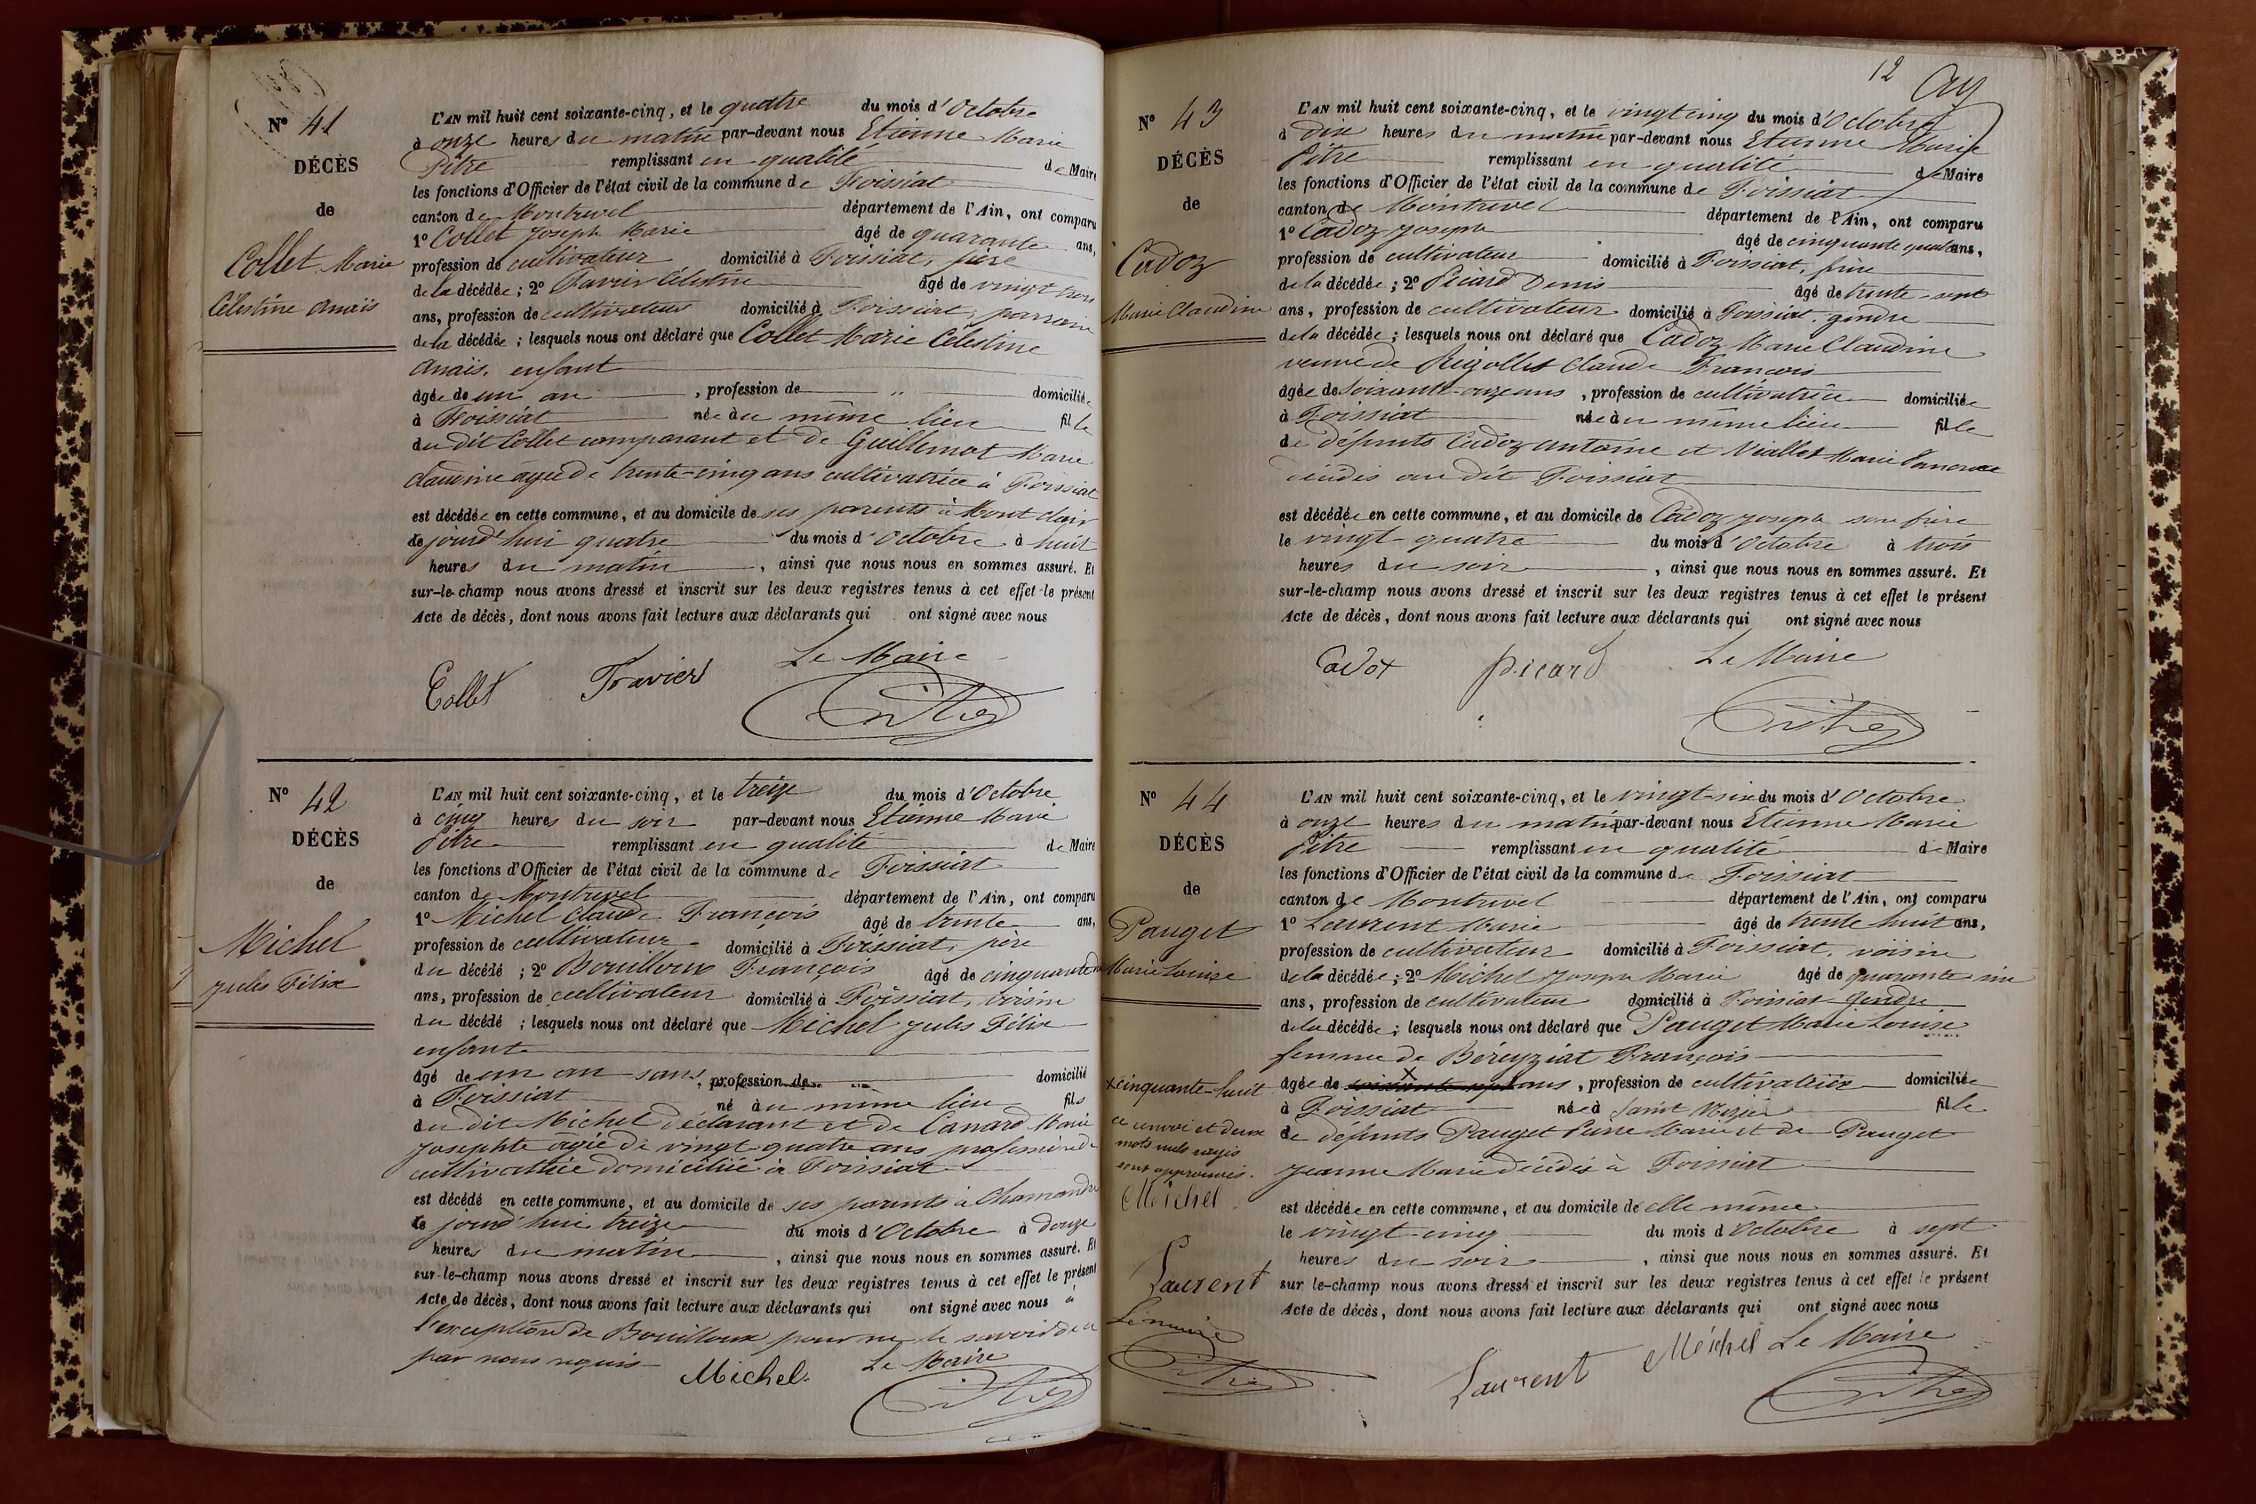 N° 41
DÉCÈS
de
Collet Marie
Célestine Anaïs
L'AN mil huit cent soixante-cinq, et le quatre du mois d'Octobre
à onze heures du matin par-devant nous Etienne Marie
Pitre remplissant en qualité de Maire
les fonctions d'Officier de l'état civil de la commune de Foissiat
canton de Montrevel département de l'Ain, ont comparu
1° Collet Joseph Marie âgé de quarante ans,
profession de cultivateur domicilié à Foissiat, père
de la décédée ; 2° Favier Célestin âgé de vingt trois
ans, profession de cultivateur domicilié à Foissiat, parrain
de la décédée ; lesquels nous ont déclaré que Collet Marie Célestine
Anaïs, enfant
âgée de un an , profession de " domiciliée
à Foissiat née au même lieu fille
du dit Collet comparant et de Guillemot Marie
Claudine agée de trente-cinq ans cultivatrice à Foissiat
est décédée en cette commune, et au domicile de ses parents à Mont clair
le jourd'hui quatre du mois d'Octobre à huit
heures du matin , ainsi que nous nous en sommes assuré. Et
sur-le-champ nous avons dressé et inscrit sur les deux registres tenus à cet effet le présent
Acte de décès, dont nous avons fait lecture aux déclarants qui ont signé avec nous
Le Maire
Collet Favier
Pitre
N° 42
DÉCÈS
de
Michel
Jules Félix
L'AN mil huit cent soixante-cinq, et le treize du mois d'Octobre
à cinq heures du soir par-devant nous Etienne Marie
Pitre remplissant en qualité de Maire
les fonctions d'Officier de l'état civil de la commune de Foissiat
canton de Montrevel département de l'Ain, ont comparu
1° Michel Claude François âgé de trente ans,
profession de cultivateur domicilié à Foissiat, père
du décédé ; 2° Bouilloux François âgé de cinquante
ans, profession de cultivateur domicilié à Foissiat, voisin
du décédé ; lesquels nous ont déclaré que Michel Jules Félix
enfant
âgé de un an sans, profession de domicilié
à Foissiat né au même lieu fils
du dit Michel déclarant et de Canard Marie
Josephte âgée de vingt-quatre ans profession de
cultivatrice domiciliée à Foissiat
est décédé en cette commune, et au domicile de ses parents à Chamandre
le jourd'hui treize du mois d'Octobre à douze
heures du matin , ainsi que nous nous en sommes assuré. Et
sur-le-champ nous avons dressé et inscrit sur les deux registres tenus à cet effet le présent
Acte de décès, dont nous avons fait lecture aux déclarants qui ont signé avec nous à
l'exception de Bouilloux pour ne le savoir de ce
par nous requis
Michel Le Maire
Pitre
12
N° 43
DÉCÈS
de
Cadoz
Marie Claudine
L'AN mil huit cent soixante-cinq, et le vingt cinq du mois d'Octobre
à dix heures du matin par-devant nous Etienne Marie
Pitre remplissant en qualité de Maire
les fonctions d'Officier de l'état civil de la commune de Foissiat
canton de Montrevel département de l'Ain, ont comparu
1° Cadoz Joseph âgé de cinquante quatre ans,
profession de cultivateur domicilié à Foissiat, frère
de la décédée ; 2° Picard Denis âgé de trente-sept
ans, profession de cultivateur domicilié à Foissiat, gendre
de la décédée ; lesquels nous ont déclaré que Cadoz Marie Claudine
veuve de Rigollet Claude François
âgée de soixante-onze ans , profession de cultivatrice domiciliée
à Foissiat née au même lieu fille
de défunts Cadoz Antoine et Viallet Marie
décédés au dit Foissiat
est décédée en cette commune, et au domicile de Cadoz Joseph son frère
le vingt-quatre du mois d'Octobre à trois
heures du soir , ainsi que nous nous en sommes assuré. Et
sur-le-champ nous avons dressé et inscrit sur les deux registres tenus à cet effet le présent
Acte de décès, dont nous avons fait lecture aux déclarants qui ont signé avec nous
Cadoz picard Le Maire
Pitre
N° 44
DÉCÈS
de
Pauget
Marie Louise
x cinquante-huit
ce renvoi et deux
mots nuls rayés
sont approuvés.
Michel
Laurent
Le maire
Pitre
L'AN mil huit cent soixante-cinq, et le vingt-six du mois d'Octobre
à onze heures du matin par-devant nous Etienne Marie
Pitre remplissant en qualité de Maire
les fonctions d'Officier de l'état civil de la commune de Foissiat
canton de Montrevel département de l'Ain, ont comparu
1° Laurent Marie âgé de trente huit ans,
profession de cultivateur domicilié à Foissiat, voisin
de la décédée ; 2° Michel Joseph Marie âgé de quarante un
ans, profession de cultivateur domicilié à Foissiat gendre
de la décédée ; lesquels nous ont déclaré que Pauget Marie Louise
femme de Béreyziat François
âgée de x soixante sept ans , profession de cultivatrice domiciliée
à Foissiat née à Saint Nizier fille
de défunts Pauget Pierre Marie et de Pauget
Jeanne Marie décédés à Foissiat
est décédée en cette commune, et au domicile de elle même
le vingt-cinq du mois d'Octobre à sept
heures du soir , ainsi que nous nous en sommes assuré. Et
sur le-champ nous avons dressé et inscrit sur les deux registres tenus à cet effet le présent
Acte de décès, dont nous avons fait lecture aux déclarants qui ont signé avec nous
Laurent Michel Le Maire
Pitre